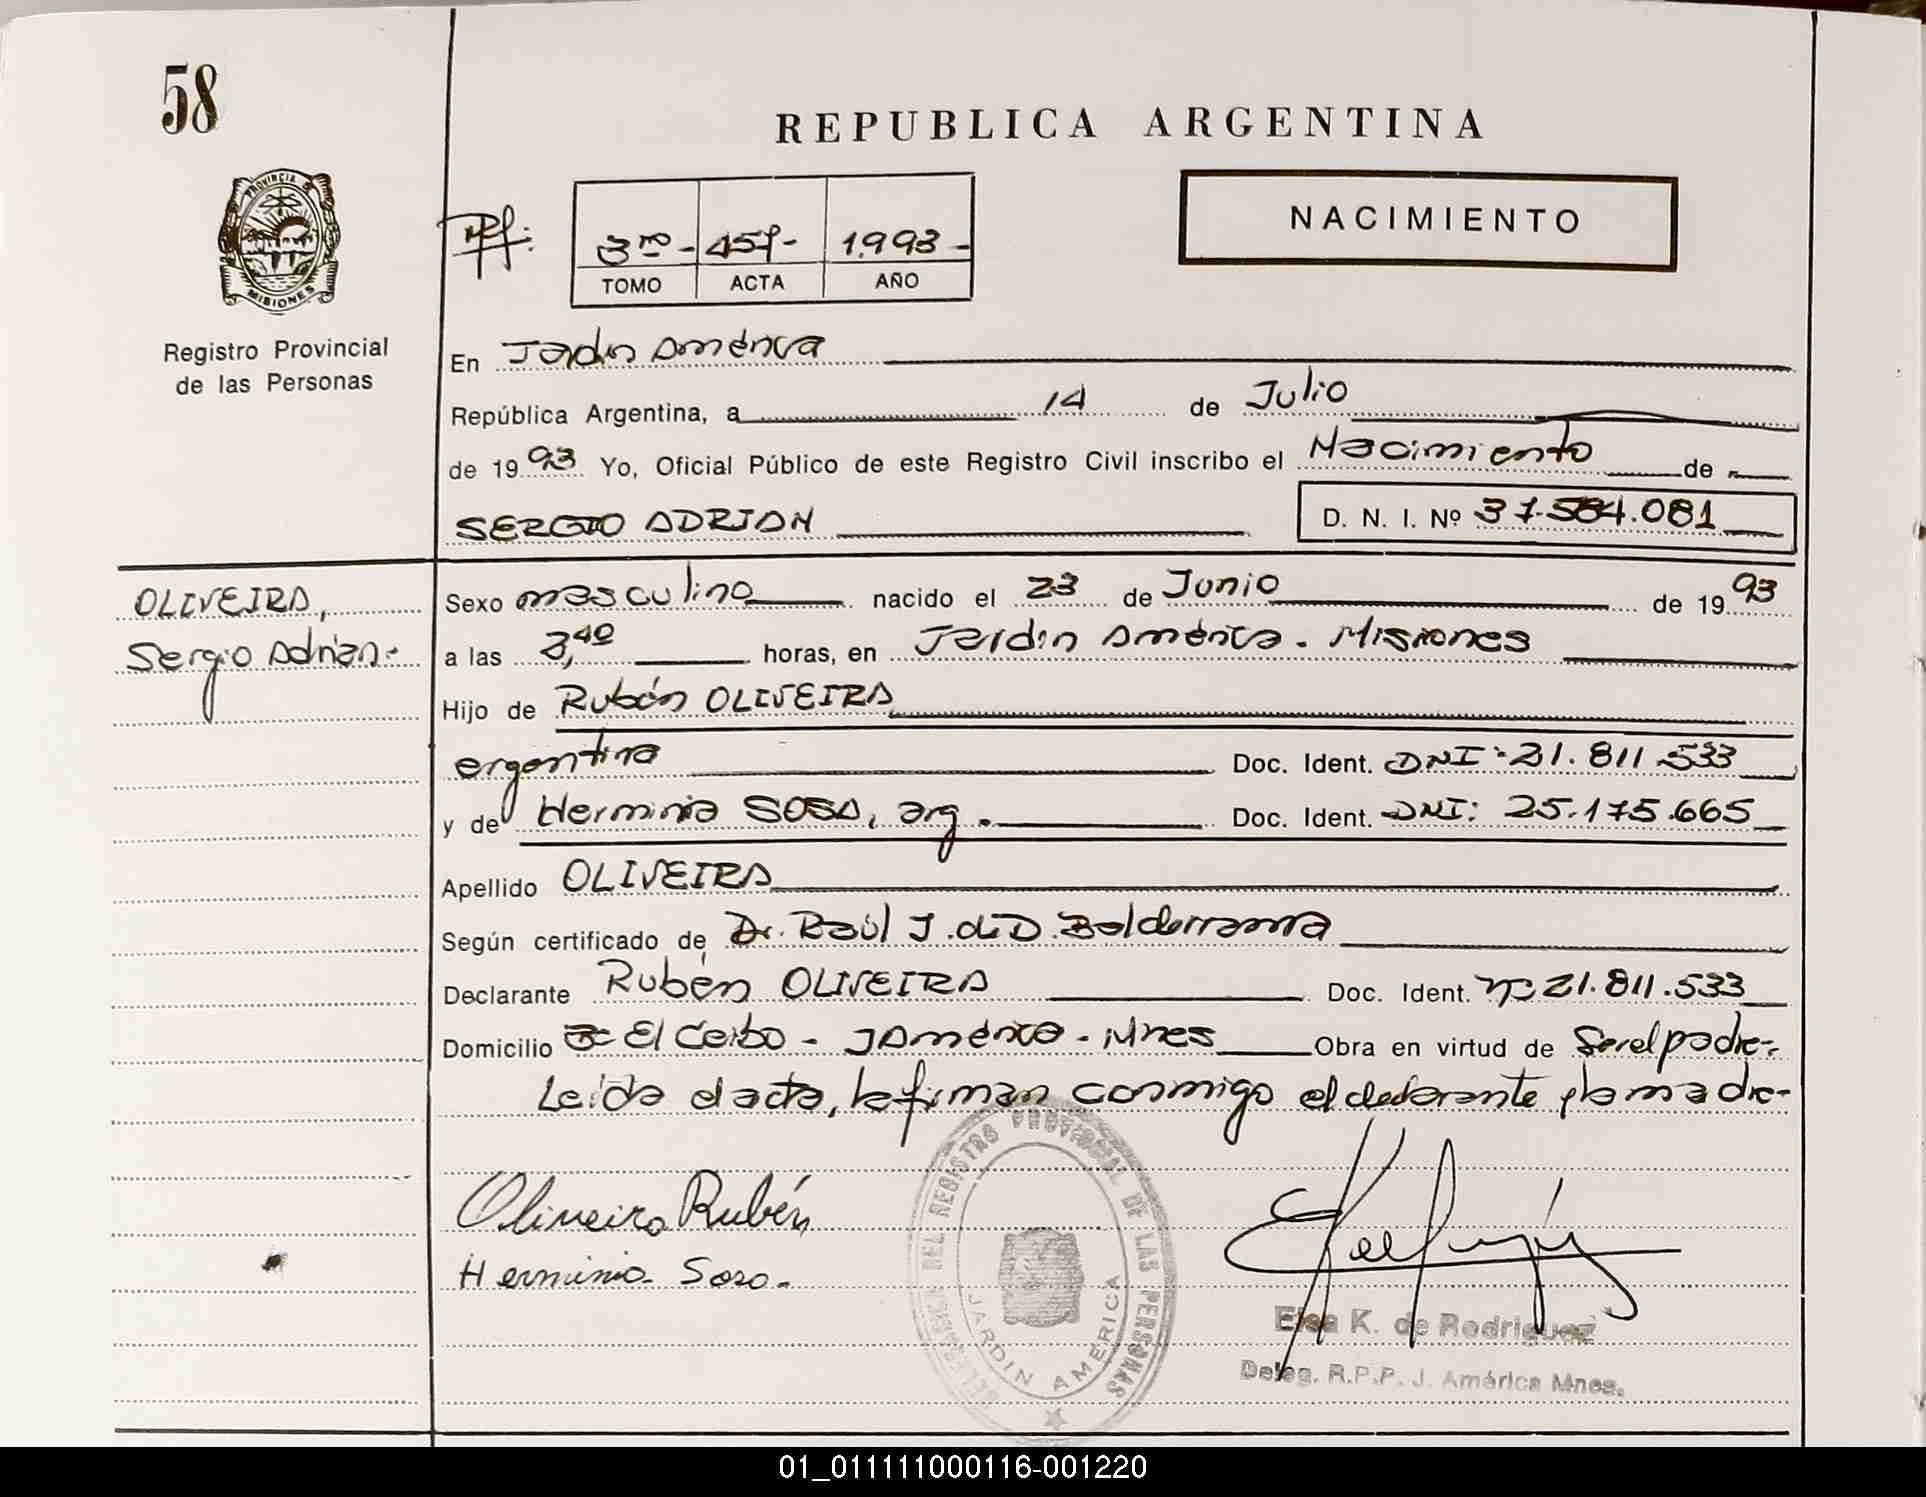 58
REPUBLICA ARGENTINA
PROVINCIA D
MISIONES
Registro Provincial
de las Personas
3ro - 457 - 1.993 -
TOMO ACTA AÑO
NACIMIENTO
En Jardín América
República Argentina, a 14 de Julio
de 1993 Yo, Oficial Público de este Registro Civil inscribo el Nacimiento de
SERGIO ADRIAN
D. N. I. Nº 37.584.081
OLIVEIRA,
Sergio Adrián.-
Sexo masculino nacido el 23 de Junio de 1993
a las 3,40 horas, en Jardín América. Misiones
Hijo de Rubén OLIVEIRA
argentina Doc. Ident. DNI: 21.811.533
y de Herminia SOSA, arg. Doc. Ident. DNI: 25.175.665
Apellido OLIVEIRA
Según certificado de Dr. Raúl J. de D. Balderrama
Declarante Rubén OLIVEIRA Doc. Ident. nº 21.811.533
Domicilio El Ceibo - J América - Mnes Obra en virtud de Ser el padre-
Leída el acta, la firman conmigo el declarante y la madre-
Oliveira Rubén
Herminia Sosa.
DEL REGISTRO PROVINCIAL DE LAS PERSONAS
JARDIN AMERICA
Elsa K. de Rodriguez
Deleg. R.P.P. J. América Mnes.
01_011111000116-001220